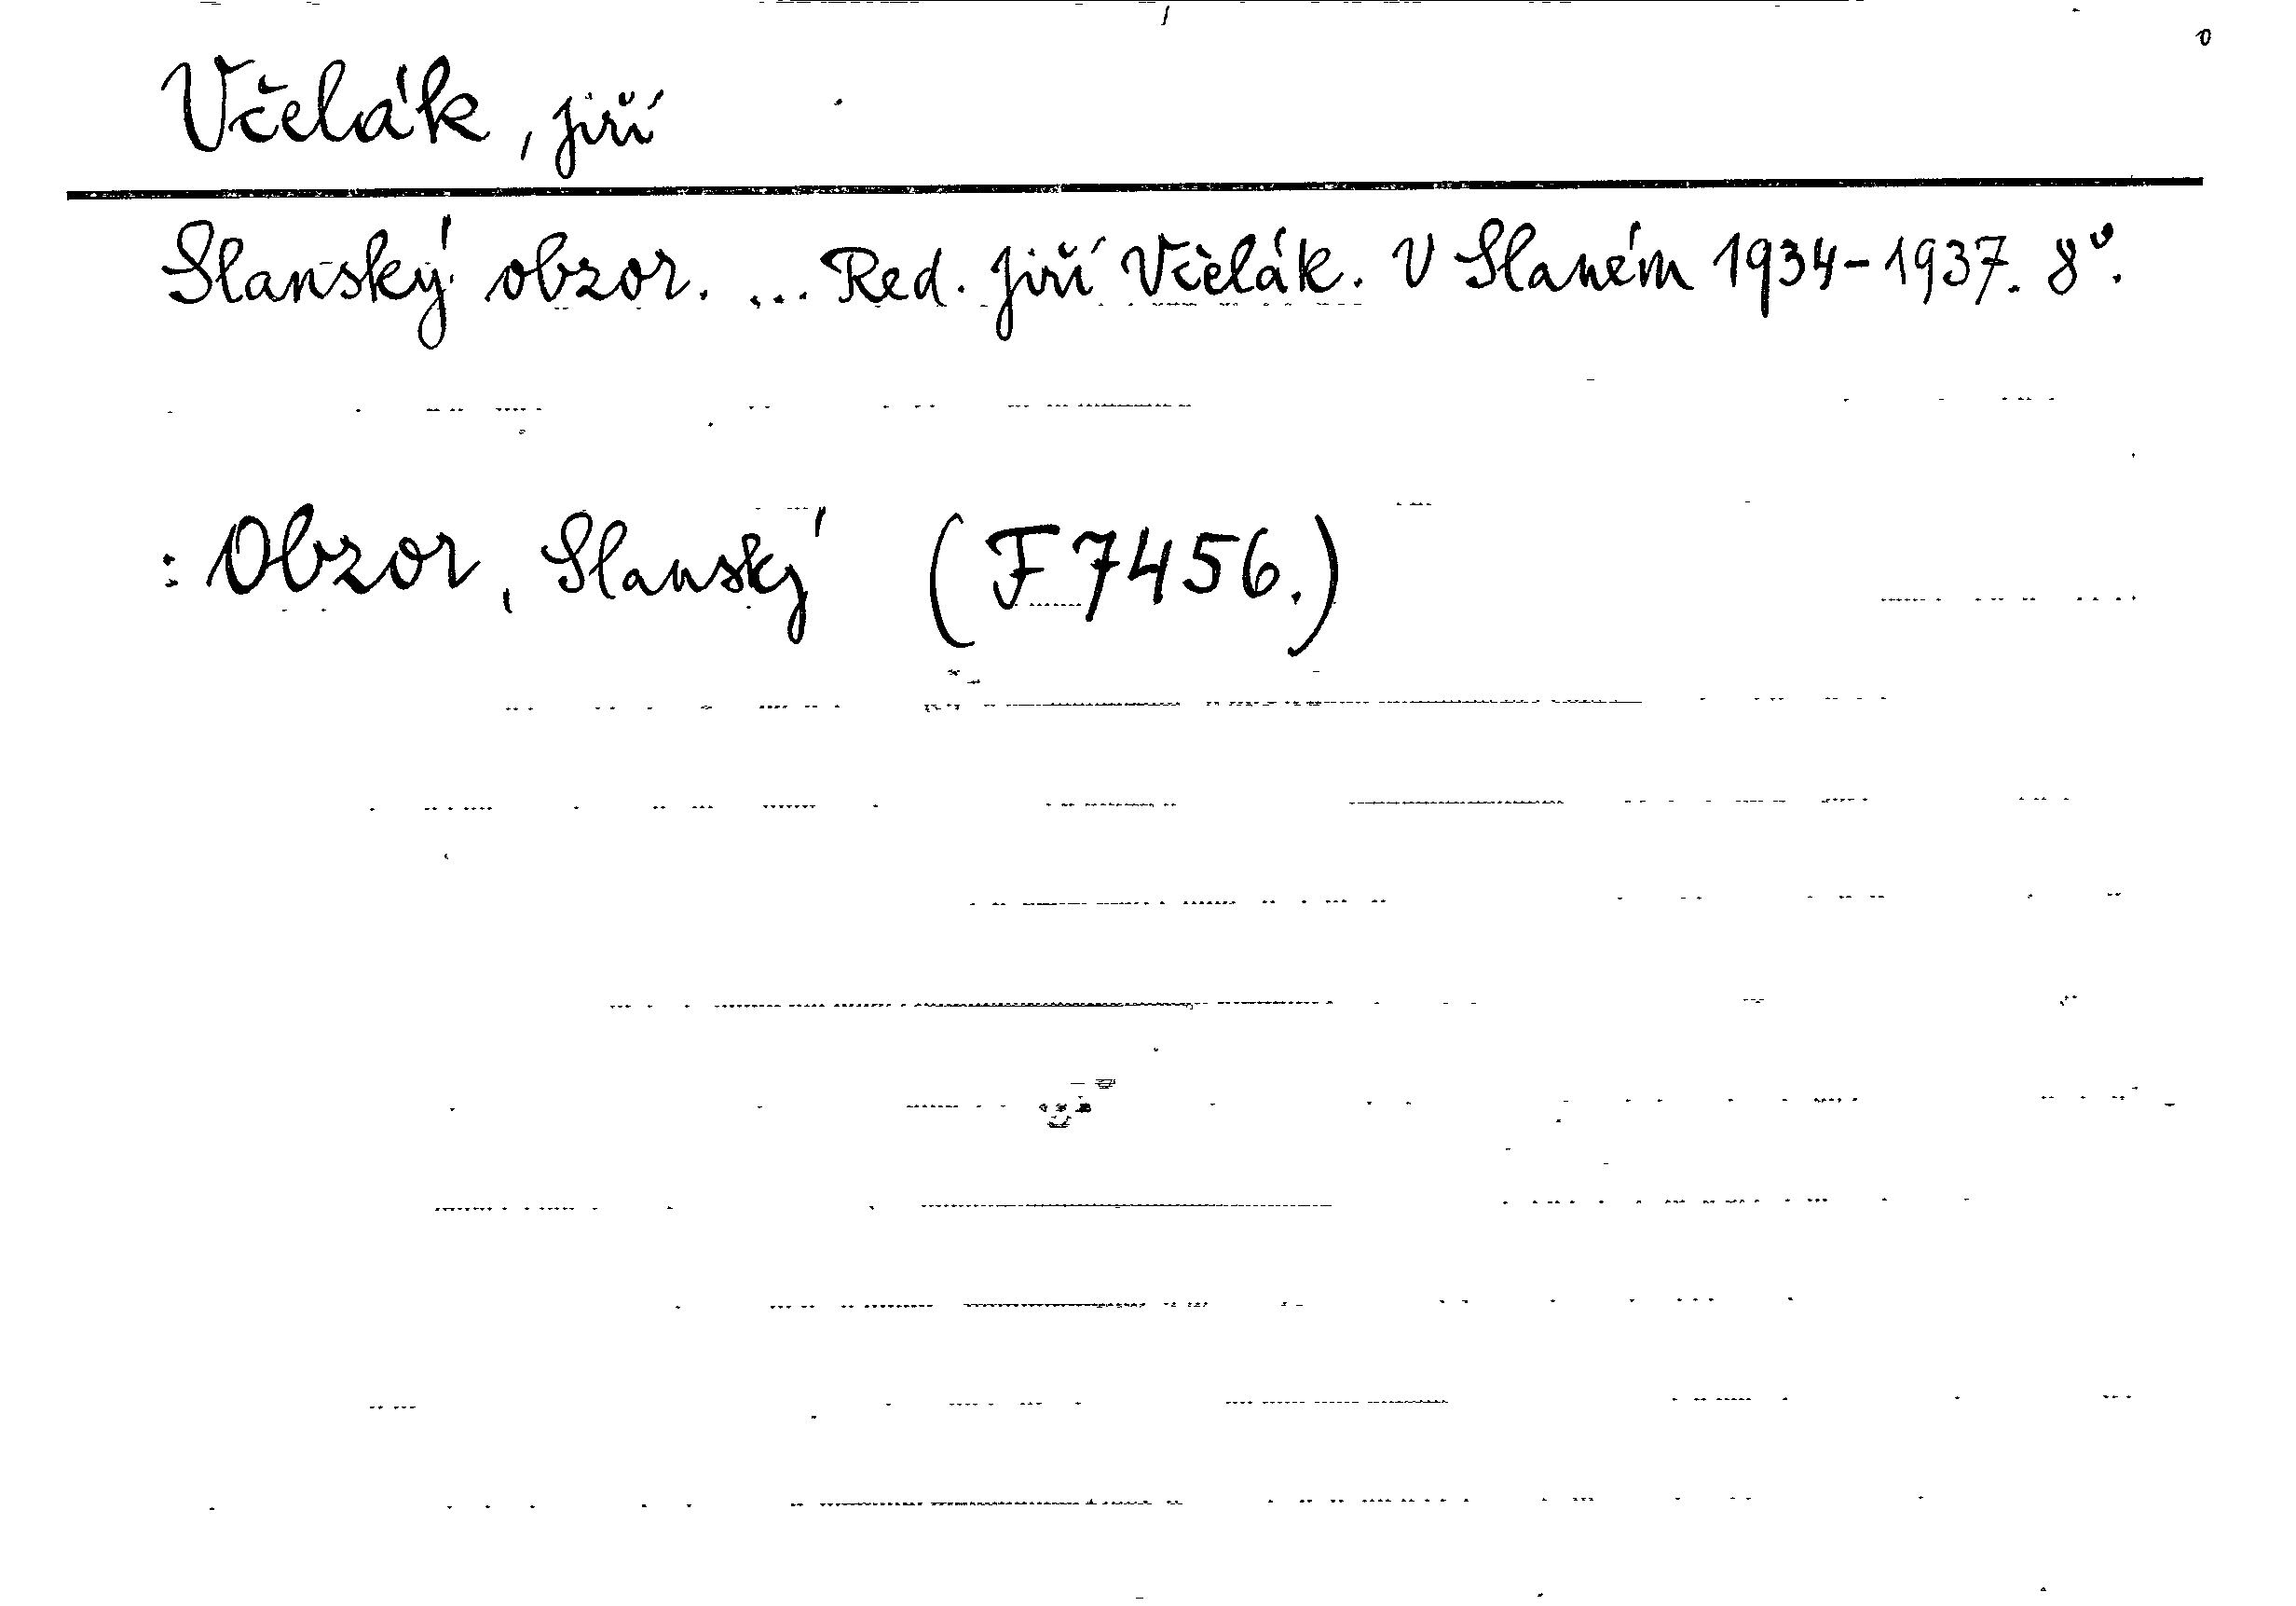 Včelák, Jiří
Slanský obzor. ... Red. Jiří Včelák. V Slaném 1934-1937. 8°.
: Obzor, Slanský (F 7456.)